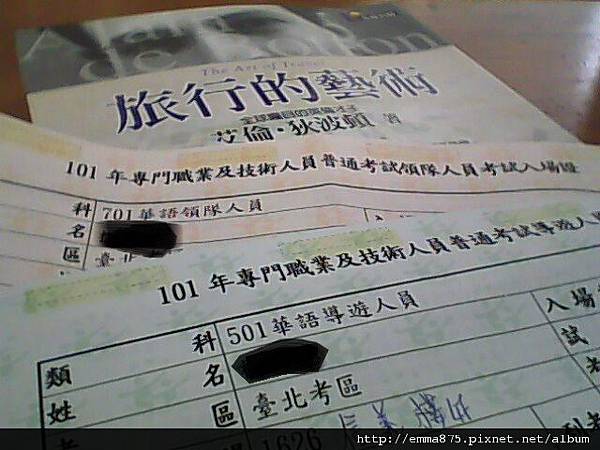 The Art of Travel
旅行的藝術
艾倫·狄波頓 著
101 年專門職業及技術人員普通考試領隊人員考試入場證
科 701華語領隊人員
名
區 臺北
101 年專門職業及技術人員普通考試導遊人
類 科 501華語導遊人員 入場
姓 名 試
區 臺北考區
1626
http://emma875.pixnet.net/album